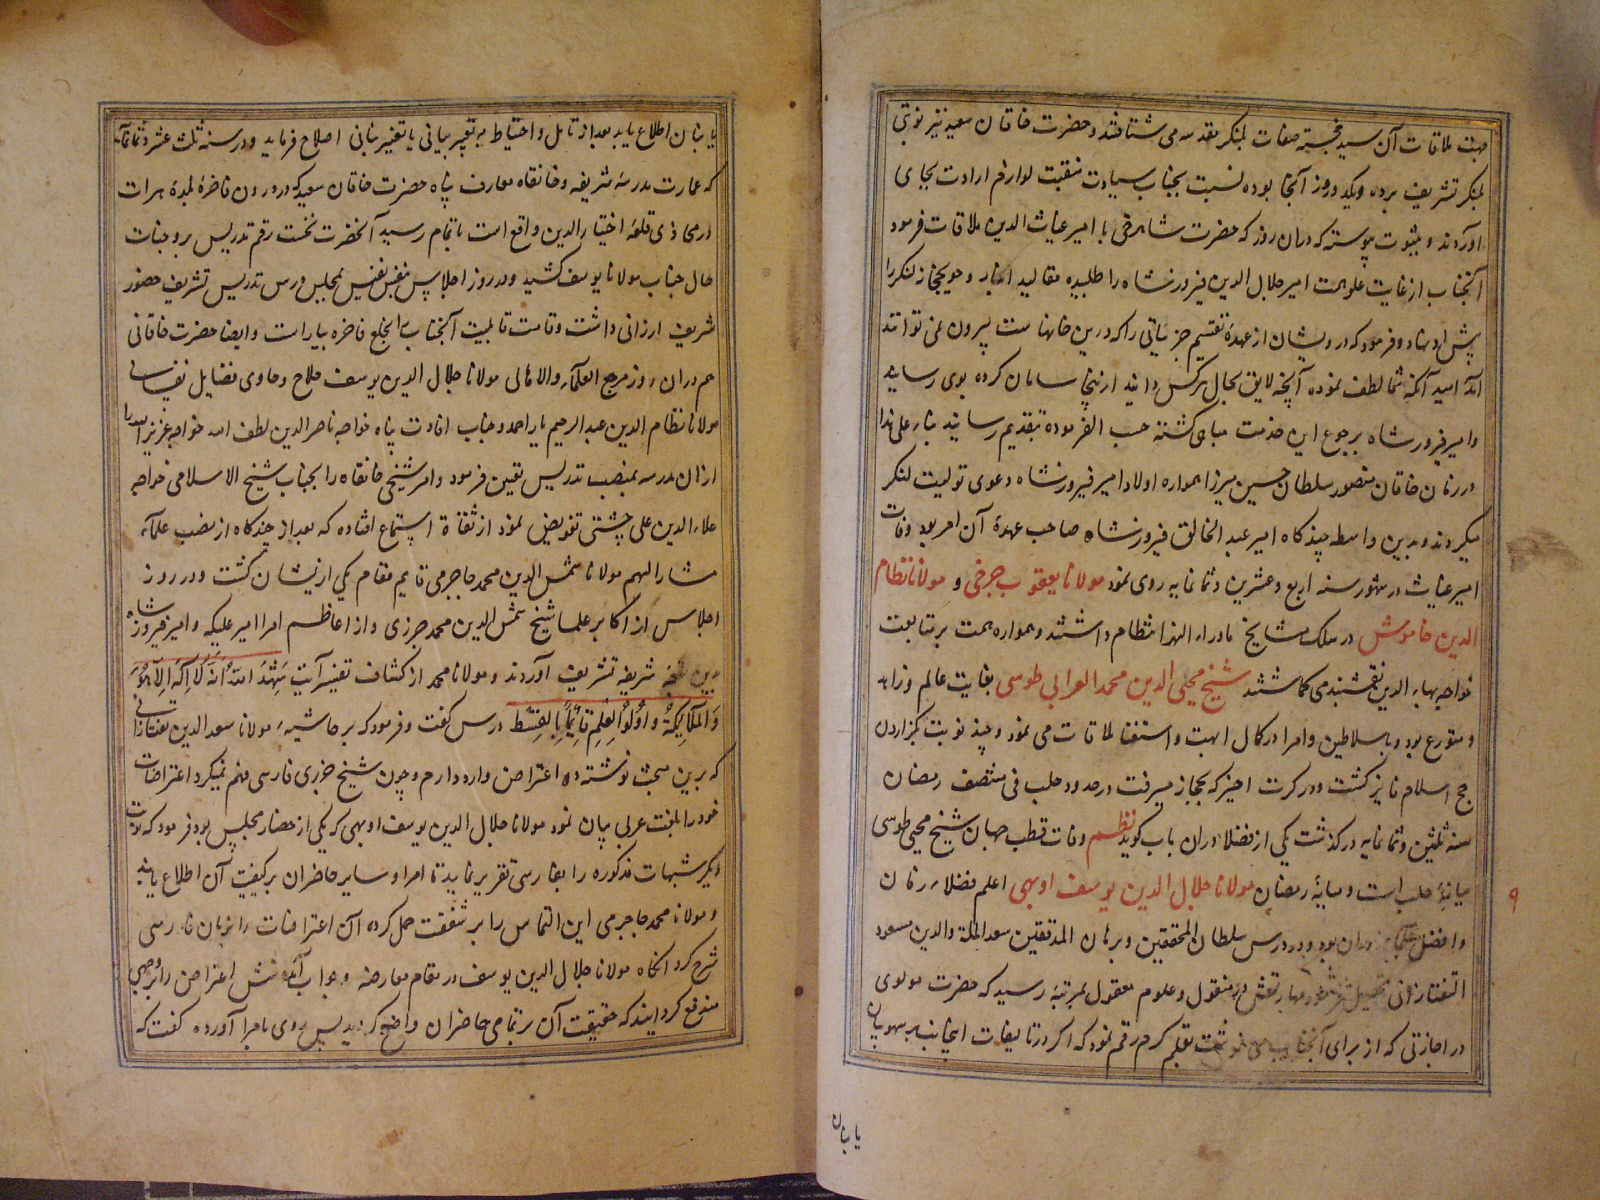 جهت ملاقات آن سید خجسته صفات بلنکر مقدسه می شتافتند و حضرت خاقان سعید نیز نوبتی
بلنکر تشریف برده ویکدو روز آنجا بوده نسبت بجناب سیادت منقبت لوازم ارادت بجای
آوردند و بثبوت پیوسته که دران روز که حضرت شاهرخی با امیر غیاث الدین ملاقات فرمود
آنجناب از غایت علو همت امیر جلال الدین فیروزشاه را طلبیده مقالید انبار و حویجخانه لنکر را
پیش او نهاد و فرمود که درویشان از عهدهٔ تقسیم جزئیاتی را که درین خانهاست بیرون نمی توانند
آمد امید آنکه شما لطف نموده آنچه لایق بحال هرکس دانید ازینجا سامان کرده بوی رسانید
و امیر فیروزشاه برجوع این خدمت مباهی کشته حسب الفرموده بتقدیم رسانید بناء علی هذا
در زمان خاقان منصور سلطان حسین میرزا همواره اولاد امیر فیروزشاه دعوی تولیت لنکر
میکردند و بدین واسطه چند کاه امیر عبد الخالق فیروزشاه صاحب عهدهٔ آن امر بود وفات
امیر غیاث در شهور سنه اربع و عشرین و ثمانمایه روی نمود مولانا یعقوب چرخی و مولانا نظام
الدین خاموش در سلک مشایخ ماوراء النهر انتظام داشتند و همواره همت بر متابعت
خواجه بهاء الدین نقشبند می کماشتند شیخ محیی الدین محمد الغزالی طوسی بغایت عالم و زاهد
و متورع بود و با سلاطین و امرا در کمال ابهت و استغنا ملاقات می نمود و چند نوبت بکزاردن
حج اسلام فایز کشت و در کرت اخیر که بحجاز میرفت در حدود حلب فی منتصف رمضان
سنه ثلثین و ثمانمایه درکذشت یکی از فضلا دران باب کوید نظم وفات قطب جهان شیخ محیی طوسی
میانهٔ حلب است و میانهٔ رمضان مولانا جلال الدین یوسف اوبهی اعلم فضلاء زمان
و افضل علماء دوران بود و در درس سلطان المحققین و برهان المدققین سعد الملة والدین مسعود
التفتازانی تحصیل نموده مهارتش در منقول و علوم معقول بمرتبهٔ رسید که حضرت مولوی
در اجازتی که از برای آنجناب می نوشت بقلم کرم رقم نمود که اکر در تالیفات اینجانب بر سهو بیان
یا بنان
۹
یا بنان اطلاع یابد بعد از تامل و احتیاط به تغییر بیانی یا تغیر بنانی اصلاح فرماید و در سنه ثلث عشر و ثمانمائه
که عمارت مدرسهٔ شریفه و خانقاه معارف پناه حضرت خاقان سعید که در درون فاخرهٔ بلدهٔ هرات
در محاذی قلعهٔ اختیار الدین واقع است باتمام رسید آنحضرت نخست رقم تدریس بر وجنات
حال جناب مولانا یوسف کشید و در روز اجلاس بنفس نفیس بمجلس درس تدریس تشریف حضور
شریف ارزانی داشت و قامت قابلیت آنجناب بخلع فاخره بیاراست و ایضا حضرت خاقانی
هم دران روز مرجع العلماء والاهالی مولانا جلال الدین یوسف حلاج و حاوی فضایل نفسانی
مولانا نظام الدین عبد الرحیم یار احمد و جناب افادت پناه خواجه ناصر الدین لطف الله خواجه عزیز الله را
ازان مدرسه بمنصب تدریس تعیین فرمود و امر شیخی خانقاه را بجناب شیخ الاسلامی خواجه
علاء الدین علی چشتی تفویض نمود از ثقاة استماع افتاده که بعد از چند کاه از نصب علماء
مشار الیهم مولانا شمس الدین محمد جاجرمی قایم مقام یکی ازیشان کشت و در روز
اجلاس از اکابر علما شیخ شمس الدین محمد جزری و از اعاظم امرا امیر علیکه و امیر فیروزشاه
بدین بقعهٔ شریفه تشریف آوردند و مولانا محمد از کشاف تفسیر آیت شَهِدَ اللّٰهُ اَنَّهُ لَا اِلٰهَ اِلَّا هُوَ
وَالْمَلٰئِکَةُ وَ اُولُوا الْعِلْمِ قَائِمًا بِالْقِسْطِ درس کفت و فرمود که بر حاشیهٔ مولانا سعد الدین تفتازانی
که برین مبحث نوشته ده اعتراض وارد دارم و چون شیخ جزری فارسی فهم نمیکرد اعتراضات
خود را بلغت عربی بیان نمود مولانا جلال الدین یوسف اوبهی که یکی از حضار مجلس بود فرمود که نوبت
دیکر شبهات مذکوره را بفارسی تقریر نمایید تا امرا و سایر حاضران بر کیفیت آن اطلاع یابند
و مولانا محمد جاجرمی این التماس را بر شفقت حمل کرده آن اعتراضات را بزبان فارسی
شرح کرد آنکاه مولانا جلال الدین یوسف در مقام معارضه و جواب آمده شش اعتراض را بر وجهی
مندفع کردانید که حقیقت آن بر تمامی حاضران واضح کردید پس روی بامرا آورده کفت که